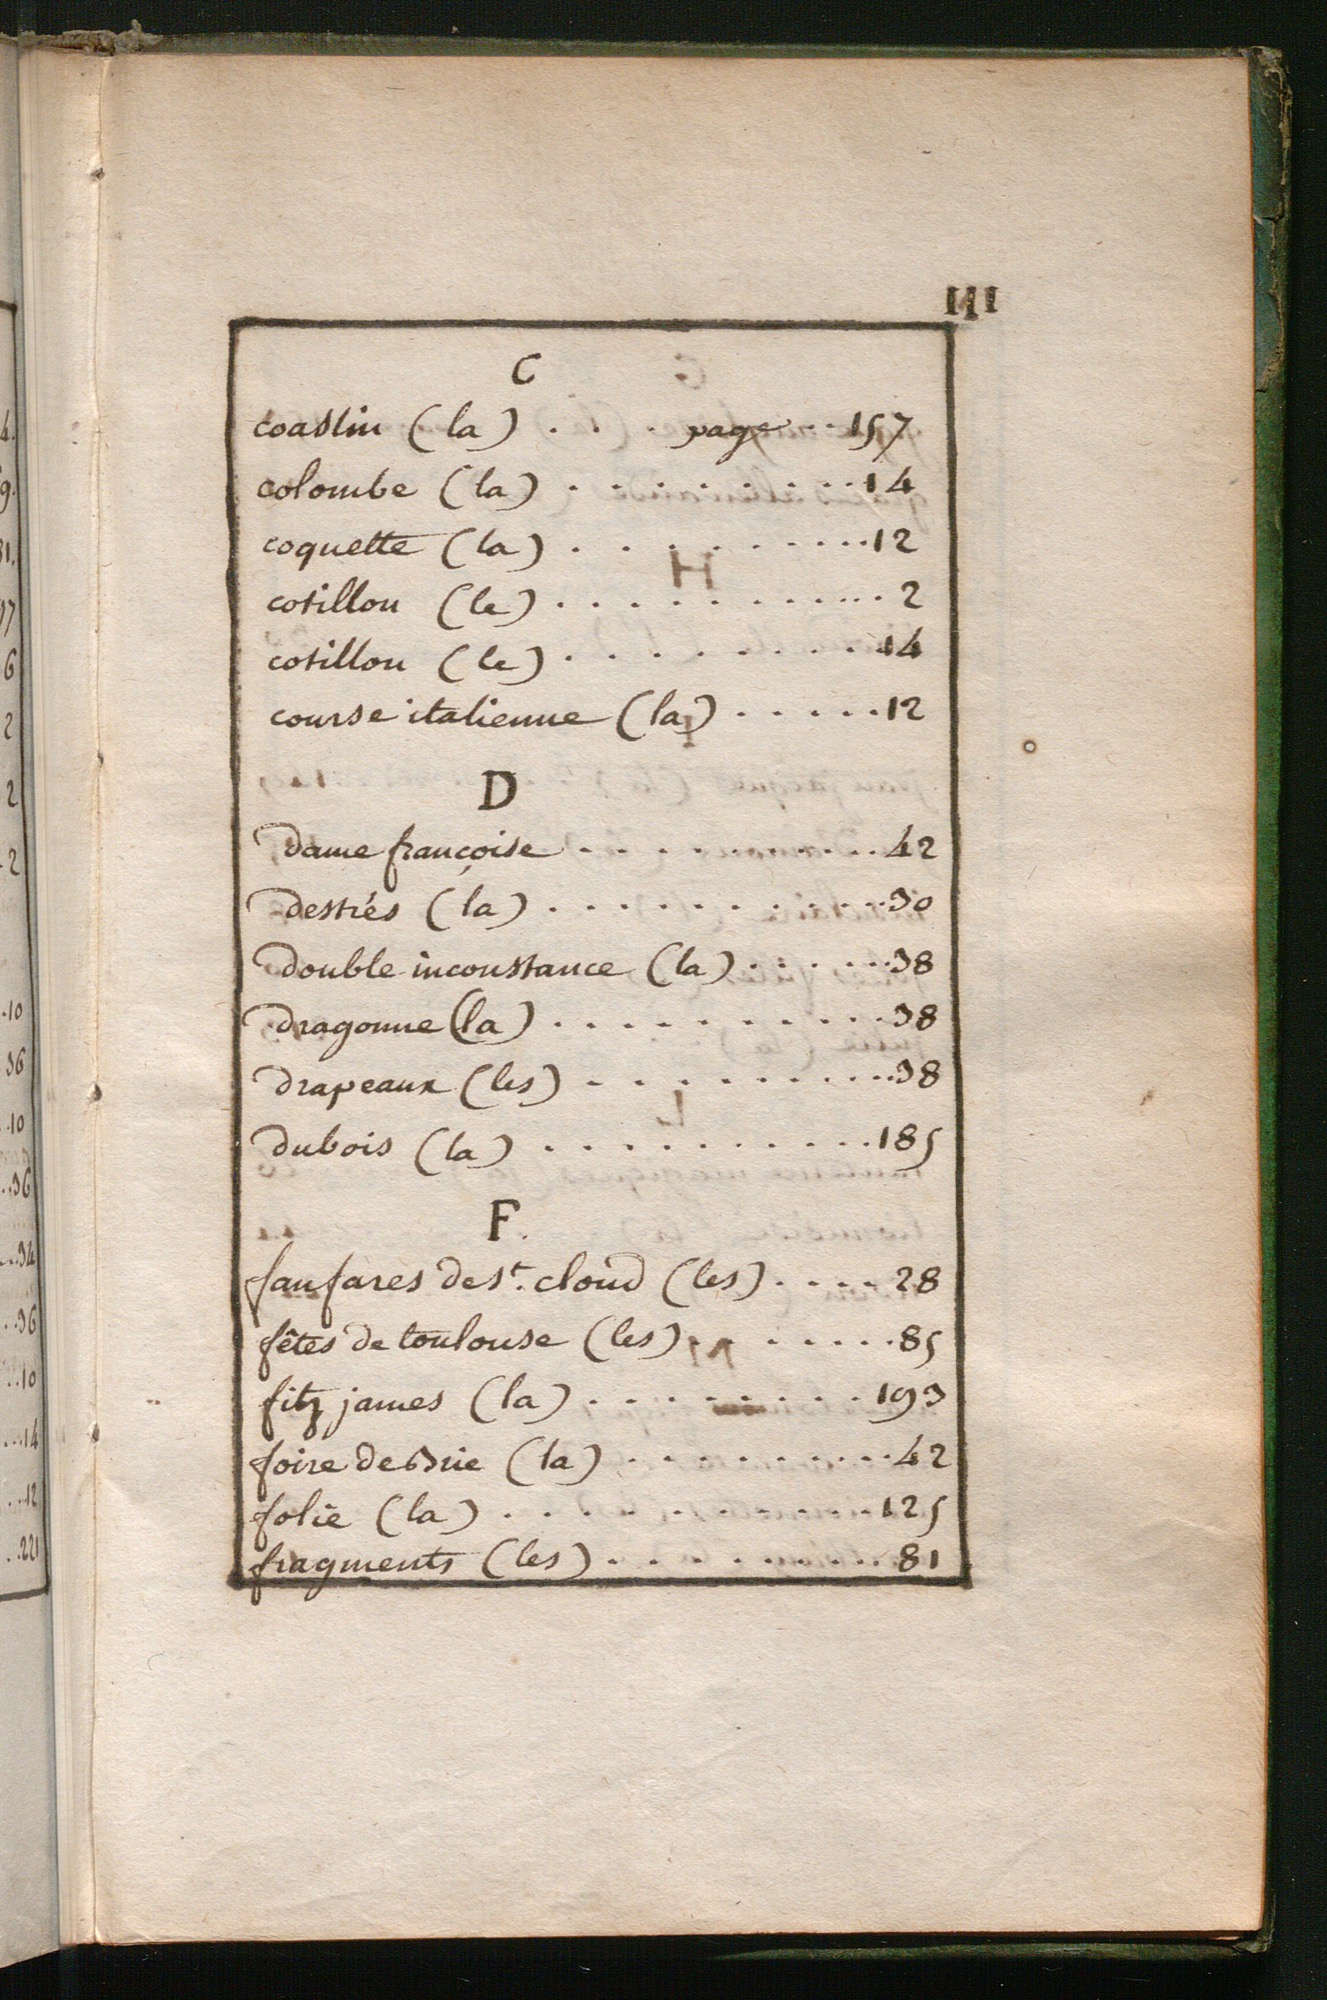 III
C
coaslin (la) . . . page . . 157
colombe (la) . . . . . . . . . 14
coquette (la) . . . . . . . . . 12
cotillon (le) . . . . . . . . . . 2
cotillon (le) . . . . . . . . . 14
course italienne (la) . . . . . 12
D
dame françoise . . . . . . . . . 42
destrés (la) . . . . . . . . . . 30
double inconstance (la) . . . . . . 38
dragonne (la) . . . . . . . . . . 38
drapeaux (les) . . . . . . . . . . 38
dubois (la) . . . . . . . . . . 185
F.
fanfares de st. cloud (les) . . . . 28
fêtes de toulouse (les) . . . . . . . 85
fitz james (la) . . . . . . . . 193
foire de Brie (la) . . . . . . . . . 42
folie (la) . . . . . . . . . . . 125
fragments (les) . . . . . . . . . 81